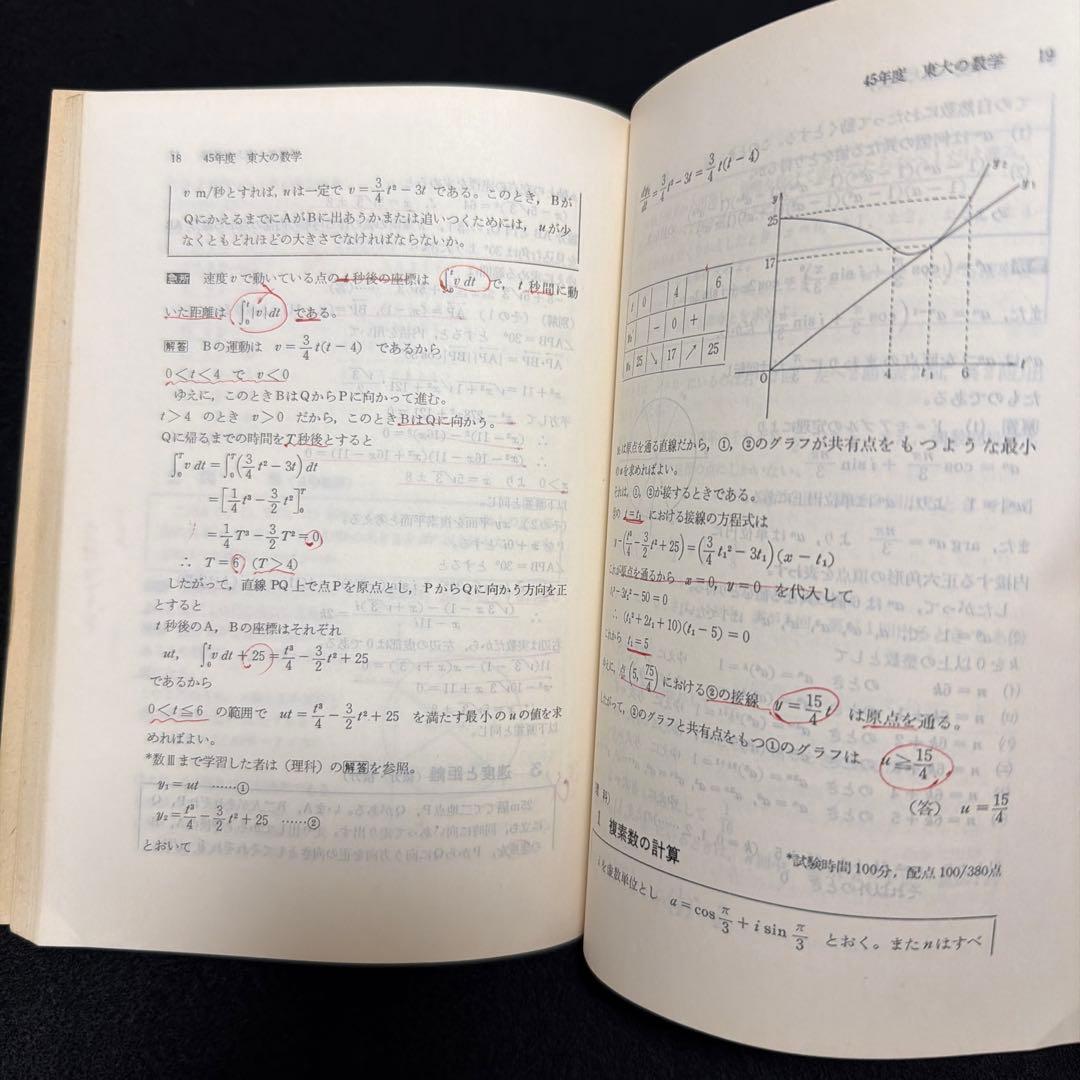 18 45年度 東大の数学
v m/秒とすれば，uは一定で v=3/4 t²−3t である。このとき，Bが
QにかえるまでにAがBに出あうかまたは追いつくためには，uが少
なくともどれほどの大きさでなければならないか。
急所 速度vで動いている点のt秒後の座標は ∫₀ᵗ v dt で，t秒間に動
いた距離は ∫₀ᵗ|v|dt である。
解答 Bの運動は v=3/4 t(t−4) であるから
0<t<4 で v<0
ゆえに，このときBはQからPに向かって進む。
t>4 のとき v>0 だから，このときBはQに向かう。
Qに帰るまでの時間をT秒後とすると
∫₀ᵀ v dt=∫₀ᵀ(3/4 t²−3t)dt
=[1/4 t³−3/2 t²]₀ᵀ
=1/4 T³−3/2 T²=0
∴ T=6 (T>4)
したがって，直線PQ上で点Pを原点とし，PからQに向かう方向を正
とすると
t秒後のA，Bの座標はそれぞれ
ut, ∫₀ᵗ v dt+25=t³/4−3/2 t²+25
であるから
0<t≦6 の範囲で ut=t³/4−3/2 t²+25 を満たす最小のuの値を求
めればよい。
*数Ⅲまで学習した者は(理科)の解答を参照。
y₁=ut ……①
y₂=t³/4−3/2 t²+25 ……②
とおいて
45年度 東大の数学 19
=3/4 t²−3t=3/4 t(t−4)
t 0 4 6
− 0 +
25 ↘ 17 ↗ 25
y
25
17
0
4 t₁ 6 t
y₂
y₁
は原点を通る直線だから，①，②のグラフが共有点をもつような最小
のuを求めればよい。
それは，①，②が接するときである。
t=t₁ における接線の方程式は
−(t₁³/4−3/2 t₁²+25)=(3/4 t₁²−3t₁)(x−t₁)
これが原点を通るから x=0, y=0 を代入して
−3t₁²−50=0
∴ (t₁²+2t₁+10)(t₁−5)=0
これから t₁=5
ゆえに，点(5, 75/4)における②の接線 y=15/4 t は原点を通る。
したがって，②のグラフと共有点をもつ①のグラフは u≧15/4
(答) u=15/4
1 複素数の計算
*試験時間100分，配点100/380点
iを虚数単位とし a=cos π/3+i sin π/3 とおく。またnはすべ